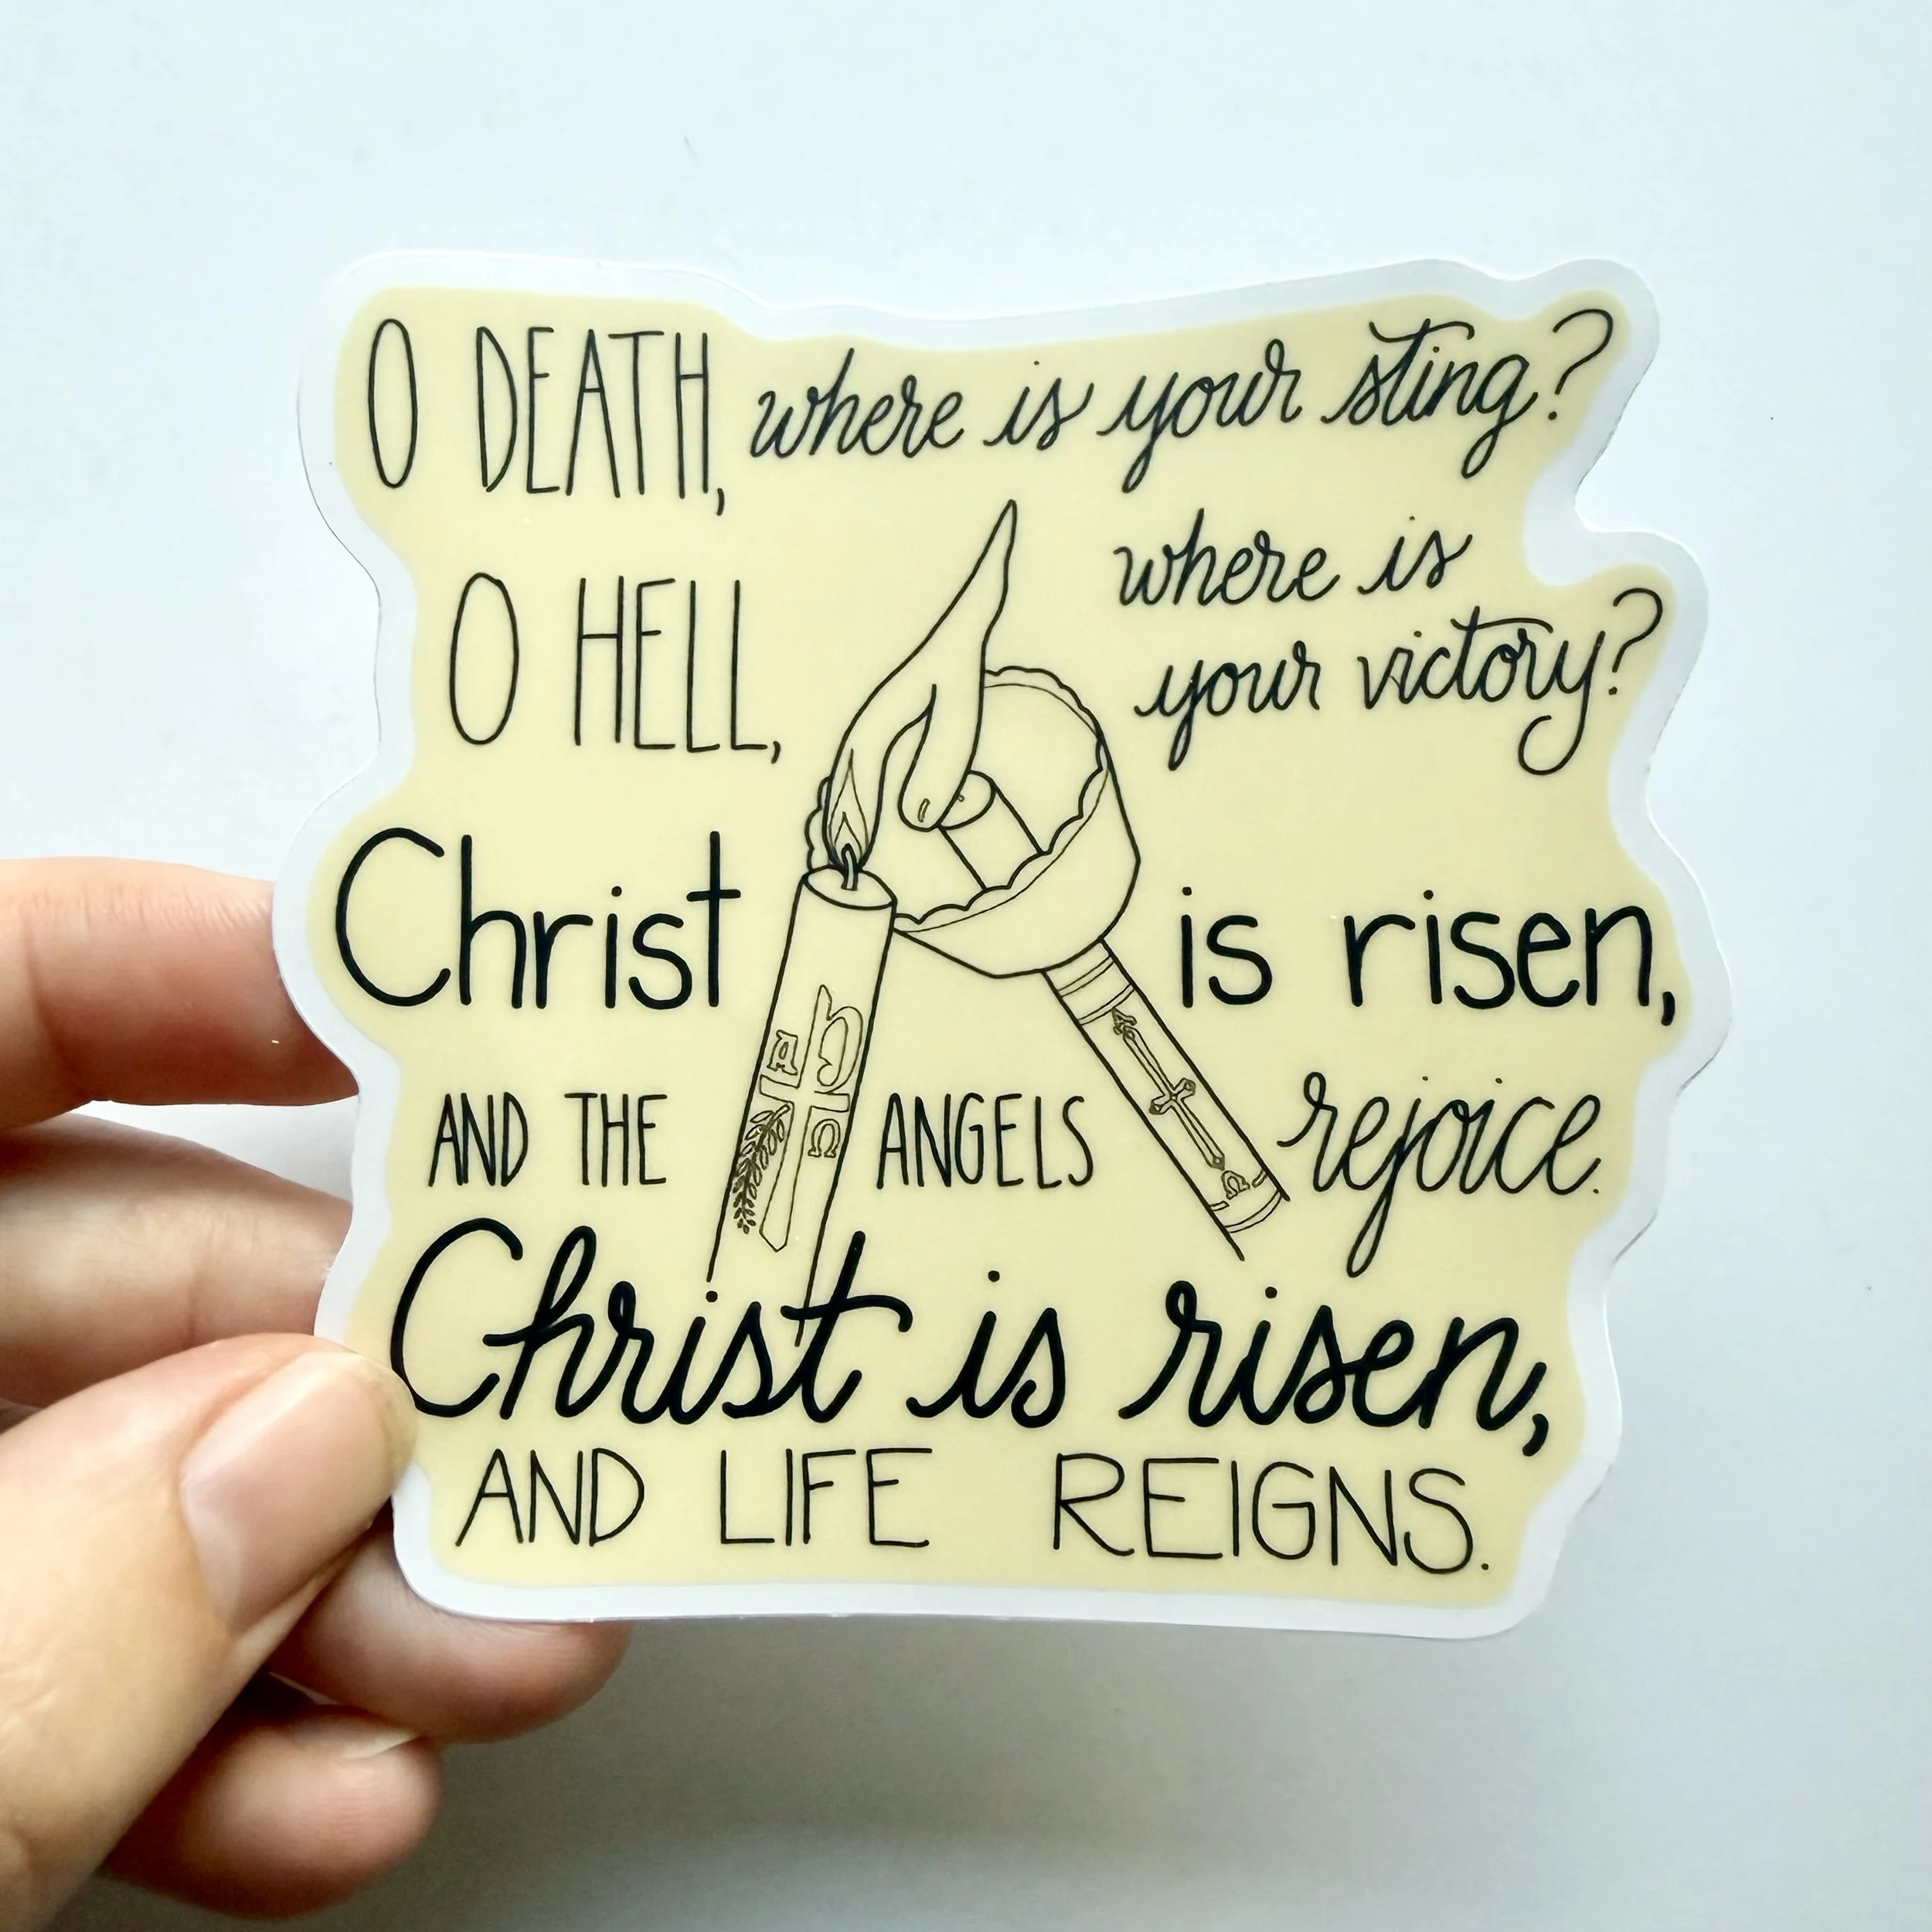 O DEATH, where is your sting?
O HELL, where is
your victory?
Christ is risen,
AND THE ANGELS rejoice.
Christ is risen,
AND LIFE REIGNS.
Α
Ω
Α
Ω